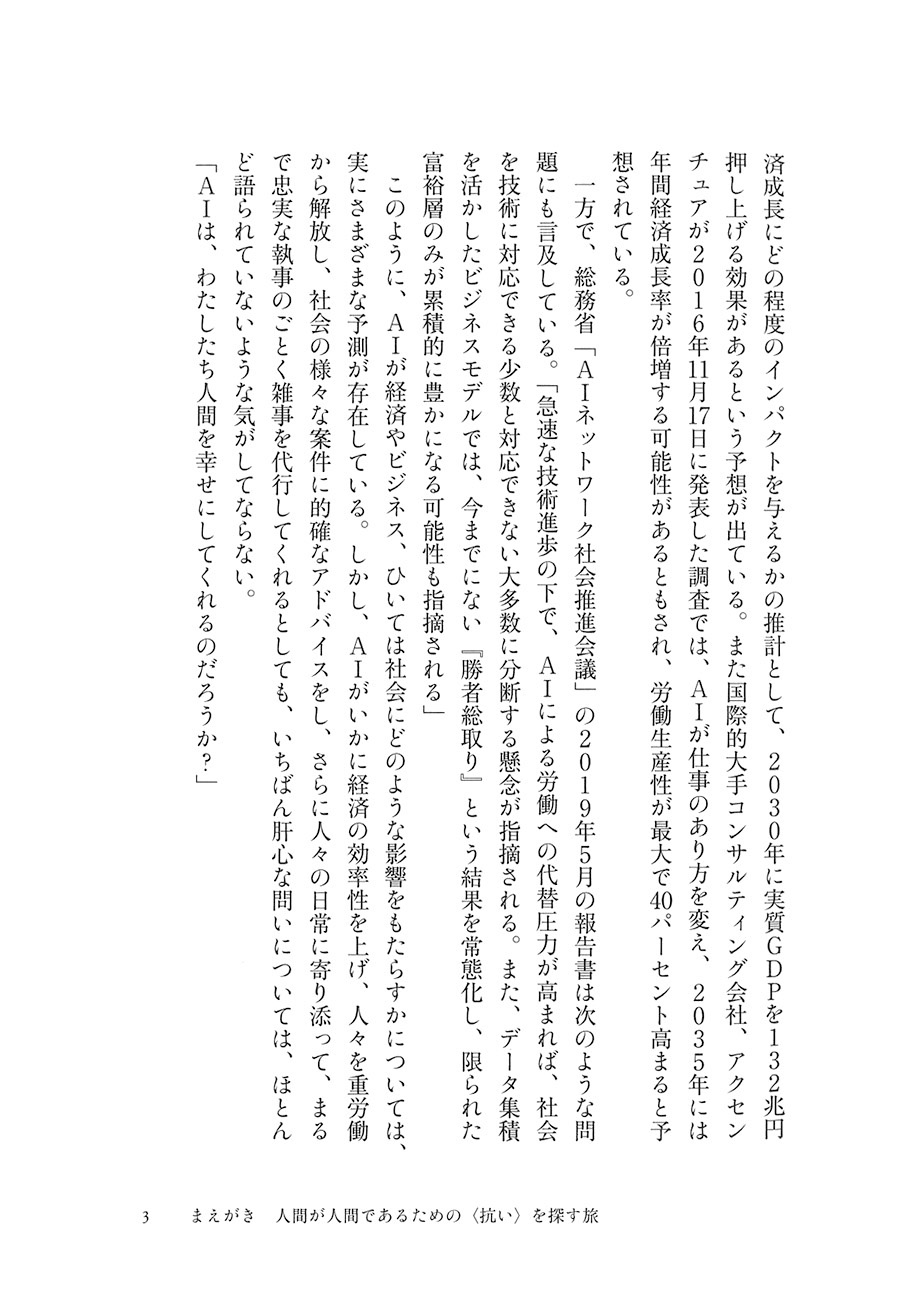 済成長にどの程度のインパクトを与えるかの推計として、2030年に実質GDPを132兆円
押し上げる効果があるという予想が出ている。また国際的大手コンサルティング会社、アクセン
チュアが2016年11月17日に発表した調査では、AIが仕事のあり方を変え、2035年には
年間経済成長率が倍増する可能性があるともされ、労働生産性が最大で40パーセント高まると予
想されている。
　一方で、総務省「AIネットワーク社会推進会議」の2019年5月の報告書は次のような問
題にも言及している。「急速な技術進歩の下で、AIによる労働への代替圧力が高まれば、社会
を技術に対応できる少数と対応できない大多数に分断する懸念が指摘される。また、データ集積
を活かしたビジネスモデルでは、今までにない『勝者総取り』という結果を常態化し、限られた
富裕層のみが累積的に豊かになる可能性も指摘される」
　このように、AIが経済やビジネス、ひいては社会にどのような影響をもたらすかについては、
実にさまざまな予測が存在している。しかし、AIがいかに経済の効率性を上げ、人々を重労働
から解放し、社会の様々な案件に的確なアドバイスをし、さらに人々の日常に寄り添って、まる
で忠実な執事のごとく雑事を代行してくれるとしても、いちばん肝心な問いについては、ほとん
ど語られていないような気がしてならない。
「AIは、わたしたち人間を幸せにしてくれるのだろうか？」
3　まえがき　人間が人間であるための〈抗い〉を探す旅